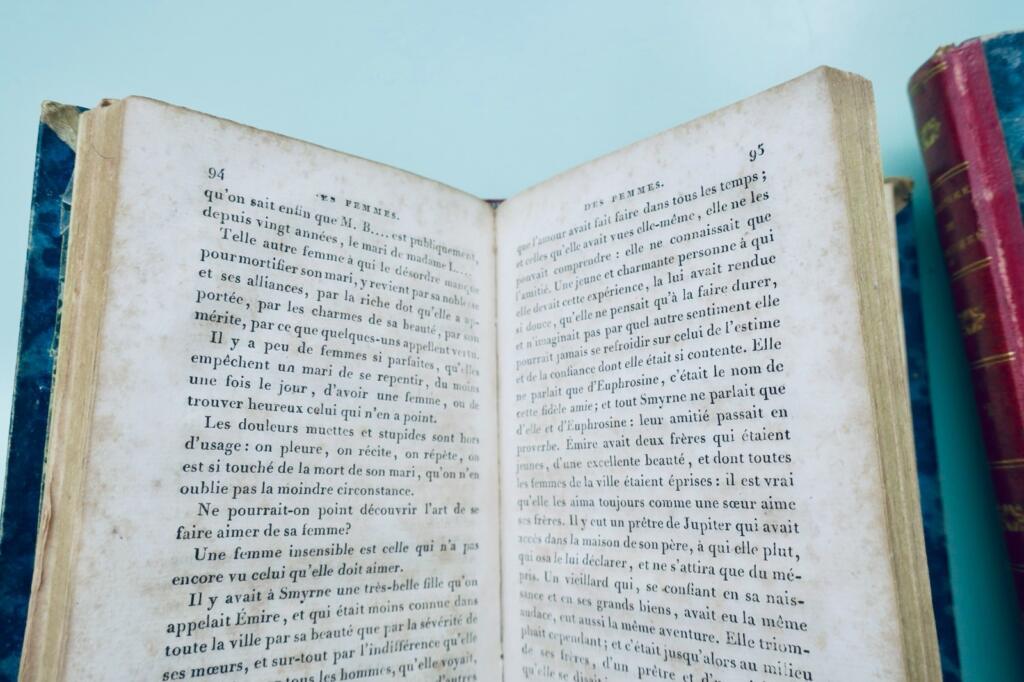 94
ES FEMMES.
qu'on sait enfin que M. B.... est publiquement,
depuis vingt années, le mari de madame L....
Telle autre femme à qui le désordre manque
pour mortifier son mari, y revient par sa noblesse
et ses alliances, par la riche dot qu'elle a ap-
portée, par les charmes de sa beauté, par son
mérite, par ce que quelques-uns appellent vertu.
Il y a peu de femmes si parfaites, qu'elles
empêchent un mari de se repentir, du moins
une fois le jour, d'avoir une femme, ou de
trouver heureux celui qui n'en a point.
Les douleurs muettes et stupides sont hors
d'usage : on pleure, on récite, on répète, on
est si touché de la mort de son mari, qu'on n'en
oublie pas la moindre circonstance.
Ne pourrait-on point découvrir l'art de se
faire aimer de sa femme?
Une femme insensible est celle qui n'a pas
encore vu celui qu'elle doit aimer.
Il y avait à Smyrne une très-belle fille qu'on
appelait Émire, et qui était moins connue dans
toute la ville par sa beauté que par la sévérité de
ses mœurs, et sur-tout par l'indifférence qu'elle
tous les hommes, qu'elle voyait,
d'autres
95
DES FEMMES.
que l'amour avait fait faire dans tous les temps ;
et celles qu'elle avait vues elle-même, elle ne les
pouvait comprendre : elle ne connaissait que
l'amitié. Une jeune et charmante personne à qui
elle devait cette expérience, la lui avait rendue
si douce, qu'elle ne pensait qu'à la faire durer,
et n'imaginait pas par quel autre sentiment elle
pourrait jamais se refroidir sur celui de l'estime
et de la confiance dont elle était si contente. Elle
ne parlait que d'Euphrosine, c'était le nom de
cette fidèle amie; et tout Smyrne ne parlait que
d'elle et d'Euphrosine : leur amitié passait en
proverbe. Émire avait deux frères qui étaient
jeunes, d'une excellente beauté, et dont toutes
les femmes de la ville étaient éprises : il est vrai
qu'elle les aima toujours comme une sœur aime
ses frères. Il y eut un prêtre de Jupiter qui avait
accès dans la maison de son père, à qui elle plut,
qui osa le lui déclarer, et ne s'attira que du mé-
pris. Un vieillard qui, se confiant en sa nais-
sance et en ses grands biens, avait eu la même
audace, eut aussi la même aventure. Elle triom-
phait cependant; et c'était jusqu'alors au milieu
de ses frères, d'un prêtre et d'un
qu'elle se disait